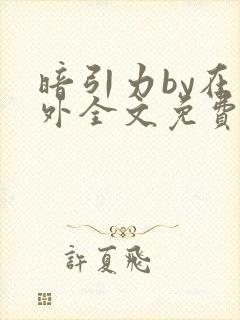 暗引力by在
外全文免費
許夏飛